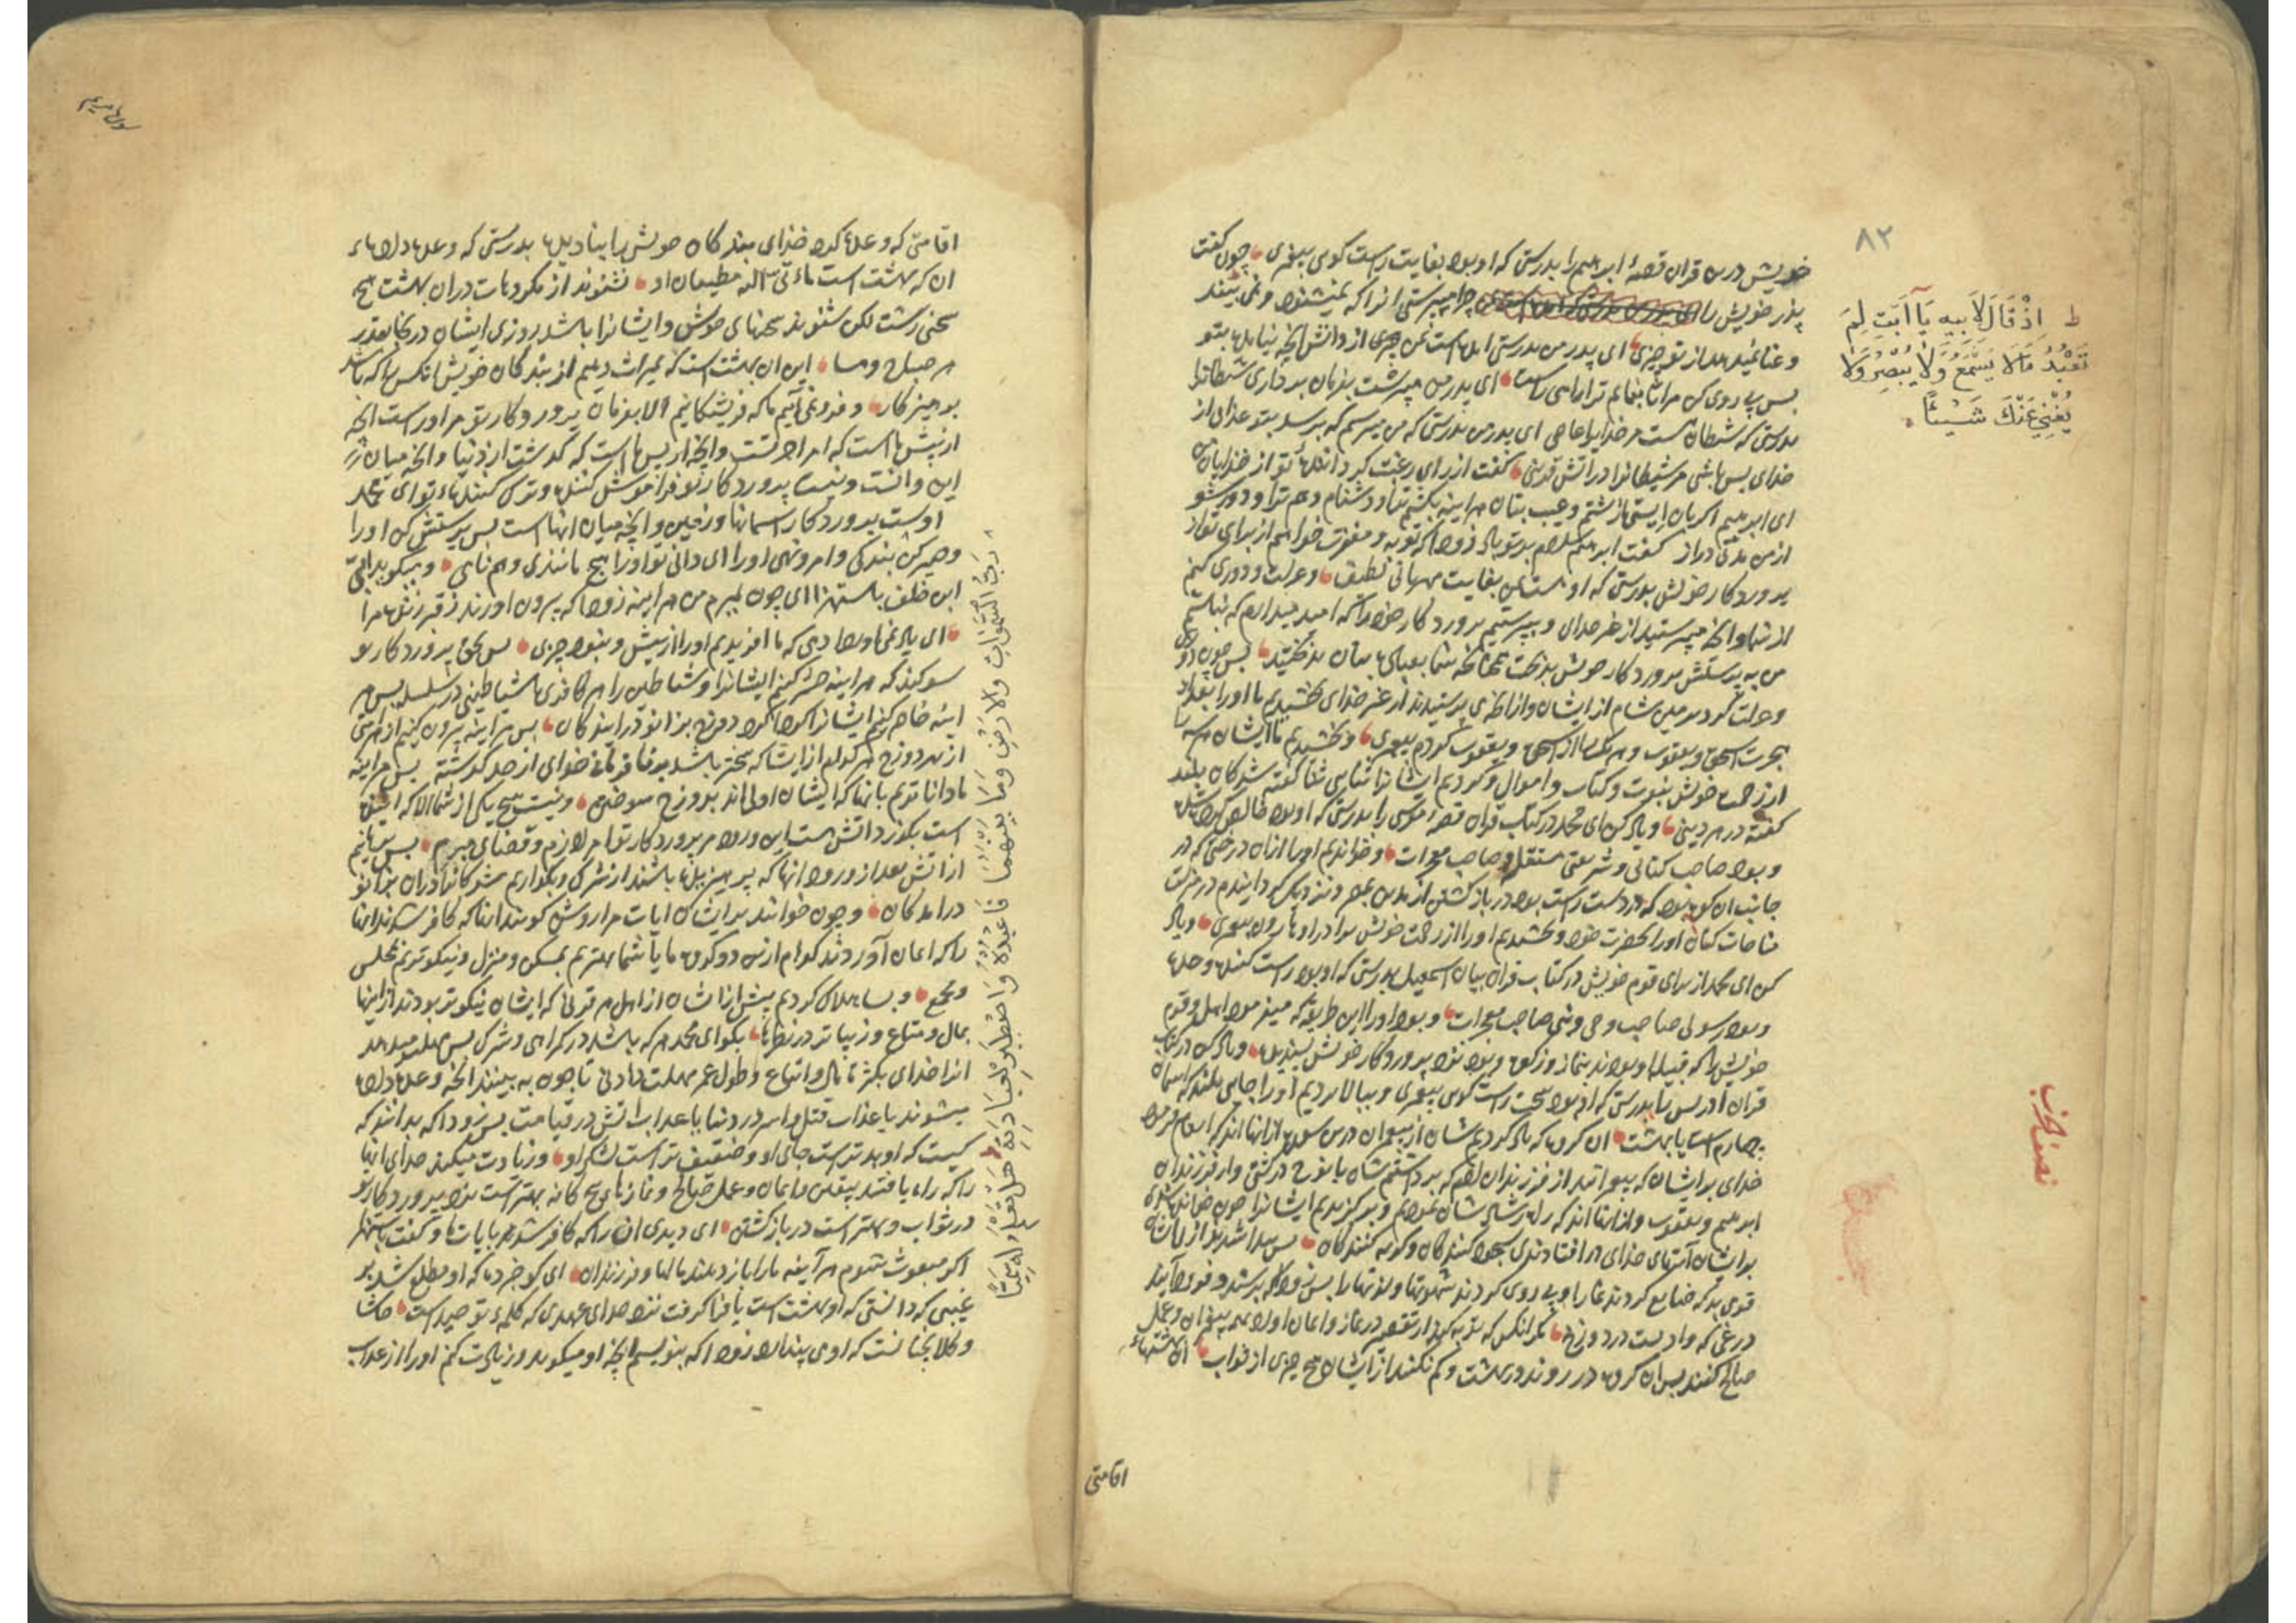 ۸۲
خویش درین قران قصهٔ ابرهیم را بدرستی که او بود بغایت راست کوی پیغمبری چون کفت
پدر خویش را چرا میپرستی انرا که نمیشنود و نمی بیند
و غنا نمیدهد از تو چیزی ای پدر من بدرستی امده است بمن چیزی از دانش انچه نیامده بتو
بس پی روی کن مرا تا بنمایم ترا راهی راست ای پدر من مپرست بفرمان برداری شیطانرا
بدرستی که شیطان هست مر خدایرا عاصی ای پدر من بدرستی که من میترسم که برسد بتو عذابی از
خدای بس باشی مر شیطانرا در اتش قرینی کفت ازر ای رغبت کرداننده تو از خدایان من
ای ابرهیم اکر باز نایستی از شتم و عیب بتان هر اینه بکشم ترا و دشنام دهم ترا و دور شو
از من مدتی دراز کفت ابرهیم سلام بر تو باد زود که توبه و مغفرت خواهم از برای تو از
پروردکار خویش بدرستی که او هست بمن بغایت مهربانی لطیف و عزلت و دوری کنم
از شما و انچه میپرستید از غیر خدای و بپرستیم پروردکار خود را که امید میدارم که نباشم
من به پرستش پروردکار خویش بدبخت همچنانکه شما بعبادت بتان بدبختید بس چون دوری
و عزلت کرد بزمین شام از ایشان و از انچه می پرستیدند از غیر خدای بخشیدیم ما اورا بعد از
هجرت اسحق و یعقوب و هر یک را از اسحق و یعقوب کردیم پیغمبری و بخشیدیم ما ایشان هر سه را
از رحمت خویش نبوت و کتاب و اموال و کردیم ایشانرا ثنایی ثنا کفته شدکان بلند
کفته در هر دینی و یاد کن ای محمد در کتاب قران قصه موسی را بدرستی که او بود خالص کرده شده
و بود صاحب کتابی و شریعتی مستقل و صاحب معجزات و خواندیم اورا از ان درختی که در
جانب ان کوه بود که در دست راست بود در باز کشتن از مدین بمصر و نزدیک کردانیدم در منزلت
مناجات کنان اورا بحضرت خود و بخشیدیم اورا از رحمت خویش برادر او هارون پیغمبری و یاد
کن ای محمد از برای قوم خویش در کتاب قران بیان اسمعیل بدرستی که او بود راست کننده وعده
و بود رسولی صاحب وحی و نبی صاحب معجزات و بود اورا این طریقه که میفرمود اهل و قوم
خویش را که قبیله او بودند بنماز و زکوة و بود نزد پروردکار خویش پسندیده و یاد کن در کتاب
قران ادریس را بدرستی که او بود سخت راست کوی پیغمبری و ببالا بردیم اورا جایی بلند که اسمان
چهارم است یا بهشت ان کروه که یاد کردیم شان از پیغمبران درین سوره از انها اند که انعام فرمود
خدای بر ایشان که پیغمبرانند از فرزندان ادم که برداشتیم شان با نوح در کشتی و از فرزندان
ابرهیم و یعقوب و از انها اند که راه رشاد شان نمودیم و برکزیدیم ایشانرا چون خوانده شود
بر ایشان آیتهای خدای در افتادندی سجود کنندکان و کریه کنندکان بس پیدا شد بعد از ایشان
قومی بد که ضایع کردند نماز را و پی روی کردند شهوتها و لذتها را بس زود که برسند و فرود آیند
در غی که وادیست در دوزخ مکر انکس که توبه کرد از تقصیر در نماز و ایمان اورد بهمه پیغمبران و عمل
صالح کنند بس ان کروه در روند در بهشت و کم نکنند از ایشان هیچ چیزی از ثواب ان بهشتهاء
ط اِذْ قَالَ لِاَبِيهِ يَآ اَبَتِ لِمَ
تَعْبُدُ مَا لَا يَسْمَعُ وَلَا يُبْصِرُ وَلَا
يُغْنِي عَنْكَ شَيْئًا
نصف الحزب
اقامتی
سورة مریم
اقامتی که وعده کرد خدای بندکان خویش را بنادیده بدرستی که وعده داده
ان که بهشت است ماتی الیه مطیعان او نشنوند از مکروهات در ان بهشت هیچ
سخنی زشت لکن شنوند سخنهای خوش و ایشانرا باشد روزی ایشان در انجا بقدر
هر صباح و مسا این ان بهشت است که بمیراث دهیم از بندکان خویش انکس را که باشد
پرهیزکار و فرو نمی آییم ما که فریشتکانیم الا بفرمان پروردکار تو مر اوراست انچه
از پیش ماست که امر اخرتست و انچه از پس ماست که کذشت از دنیا و انچه میان
این و انست و نیست پروردکار تو فراموش کننده و ترک کننده تو ای محمد
اوست پروردکار اسمانها و زمین و انچه میان انهاست بس پرستش کن اورا
و صبر کن بندکی و امر و نهی اورا ای دانی تو اورا هیچ مانندی و هم نامی و میکوید ابی
ابن خلف باستهزا ای چون بمیرم من هر اینه زود که بیرون اورند از قبر زنده مرا
ای یاد نمی اورد ادمی که ما افریدیم اورا از پیش و نبود چیزی بس بحق پروردکار تو
سوکند که هر اینه حشر کنیم ایشانرا و شیاطین را هر کافری با شیاطینی در سلسله بس هر
اینه حاضر کنیم ایشانرا کرداکرد دوزخ بزانو درایندکان بس هر اینه بیرون کنیم از هر امتی
از بهر دوزخ هر کدام از ایشان که سختر باشد بر نافرمانی خدای از حد کذشته بس هر اینه
ما داناتریم بانها که ایشان اولی اند بدوزخ سوختن و نیست هیچ یکی از شما الا که
است بکذر داتش هست این ورود مر پروردکار تو امر لازم و قضای مبرم بس برهانیم
از اتش بعد از ورود انها که پرهیزیده باشند از شرک و بکذاریم مشرکانرا در ان بزانو
درامدکان و چون خوانند بر ایشان ایات مرا روشن کویند انها که کافر شدند انها
را که ایمان آوردند کدام ازین دو کروه ما یا شما بهتریم بمسکن و منزل و نیکوتریم بمجلس
و مجمع و بسا هلاک کردیم پیش از ایشان از اهل هر قرنی که ایشان نیکوتر بودند از اینها
بمال و متاع و زیباتر در نظرها بکو ای محمد هر که باشد در کمراهی و شرک بس مهلت میدهد
انرا خدای بکثرة مال و اتباع و طول عمر مهلت دادنی تا چون به بینند انچه وعده داده
میشوند یا عذاب قتل و اسر در دنیا یا عذاب اتش در قیامت بس زود که بدانند که
کیست که او بدتر است جای او و ضعیف تر است لشکر او و زیادت میکند خدای انها
را که راه یافتند بیقین و ایمان و عمل صالح و نمازهای پنج کانه بهتر است نزد پروردکار تو
در ثواب و بهتر است در باز کشتن ای دیدی ان را که کافر شد بایات ما و کفت باستهزا
اکر مبعوث شوم هر آینه مرا باز دهند مالها و فرزندان ای کو خبر ده که او مطلع شد بر
غیبی که دانستی که او بهشت است یا فرا کرفت نزد خدای عهدی که کلمهٔ توحید است حاشا
و کلا نچنانست که او می پندارد زود که بنویسیم انچه او میکوید و زیادت کنم اورا از عذاب
رَبُّ السَّمٰوَاتِ وَالْاَرْضِ وَمَا بَيْنَهُمَا فَاعْبُدْهُ وَاصْطَبِرْ لِعِبَادَتِهِ هَلْ تَعْلَمُ لَهُ سَمِيًّا